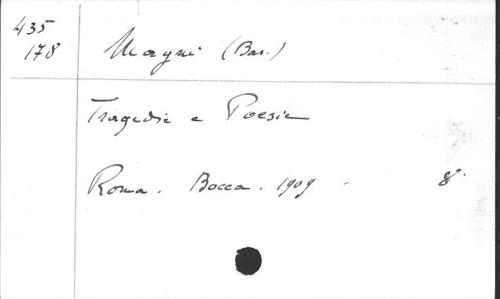 435
178
Magni (Bas.)
Tragedie e Poesie
Roma. Bocca. 1909. 8°